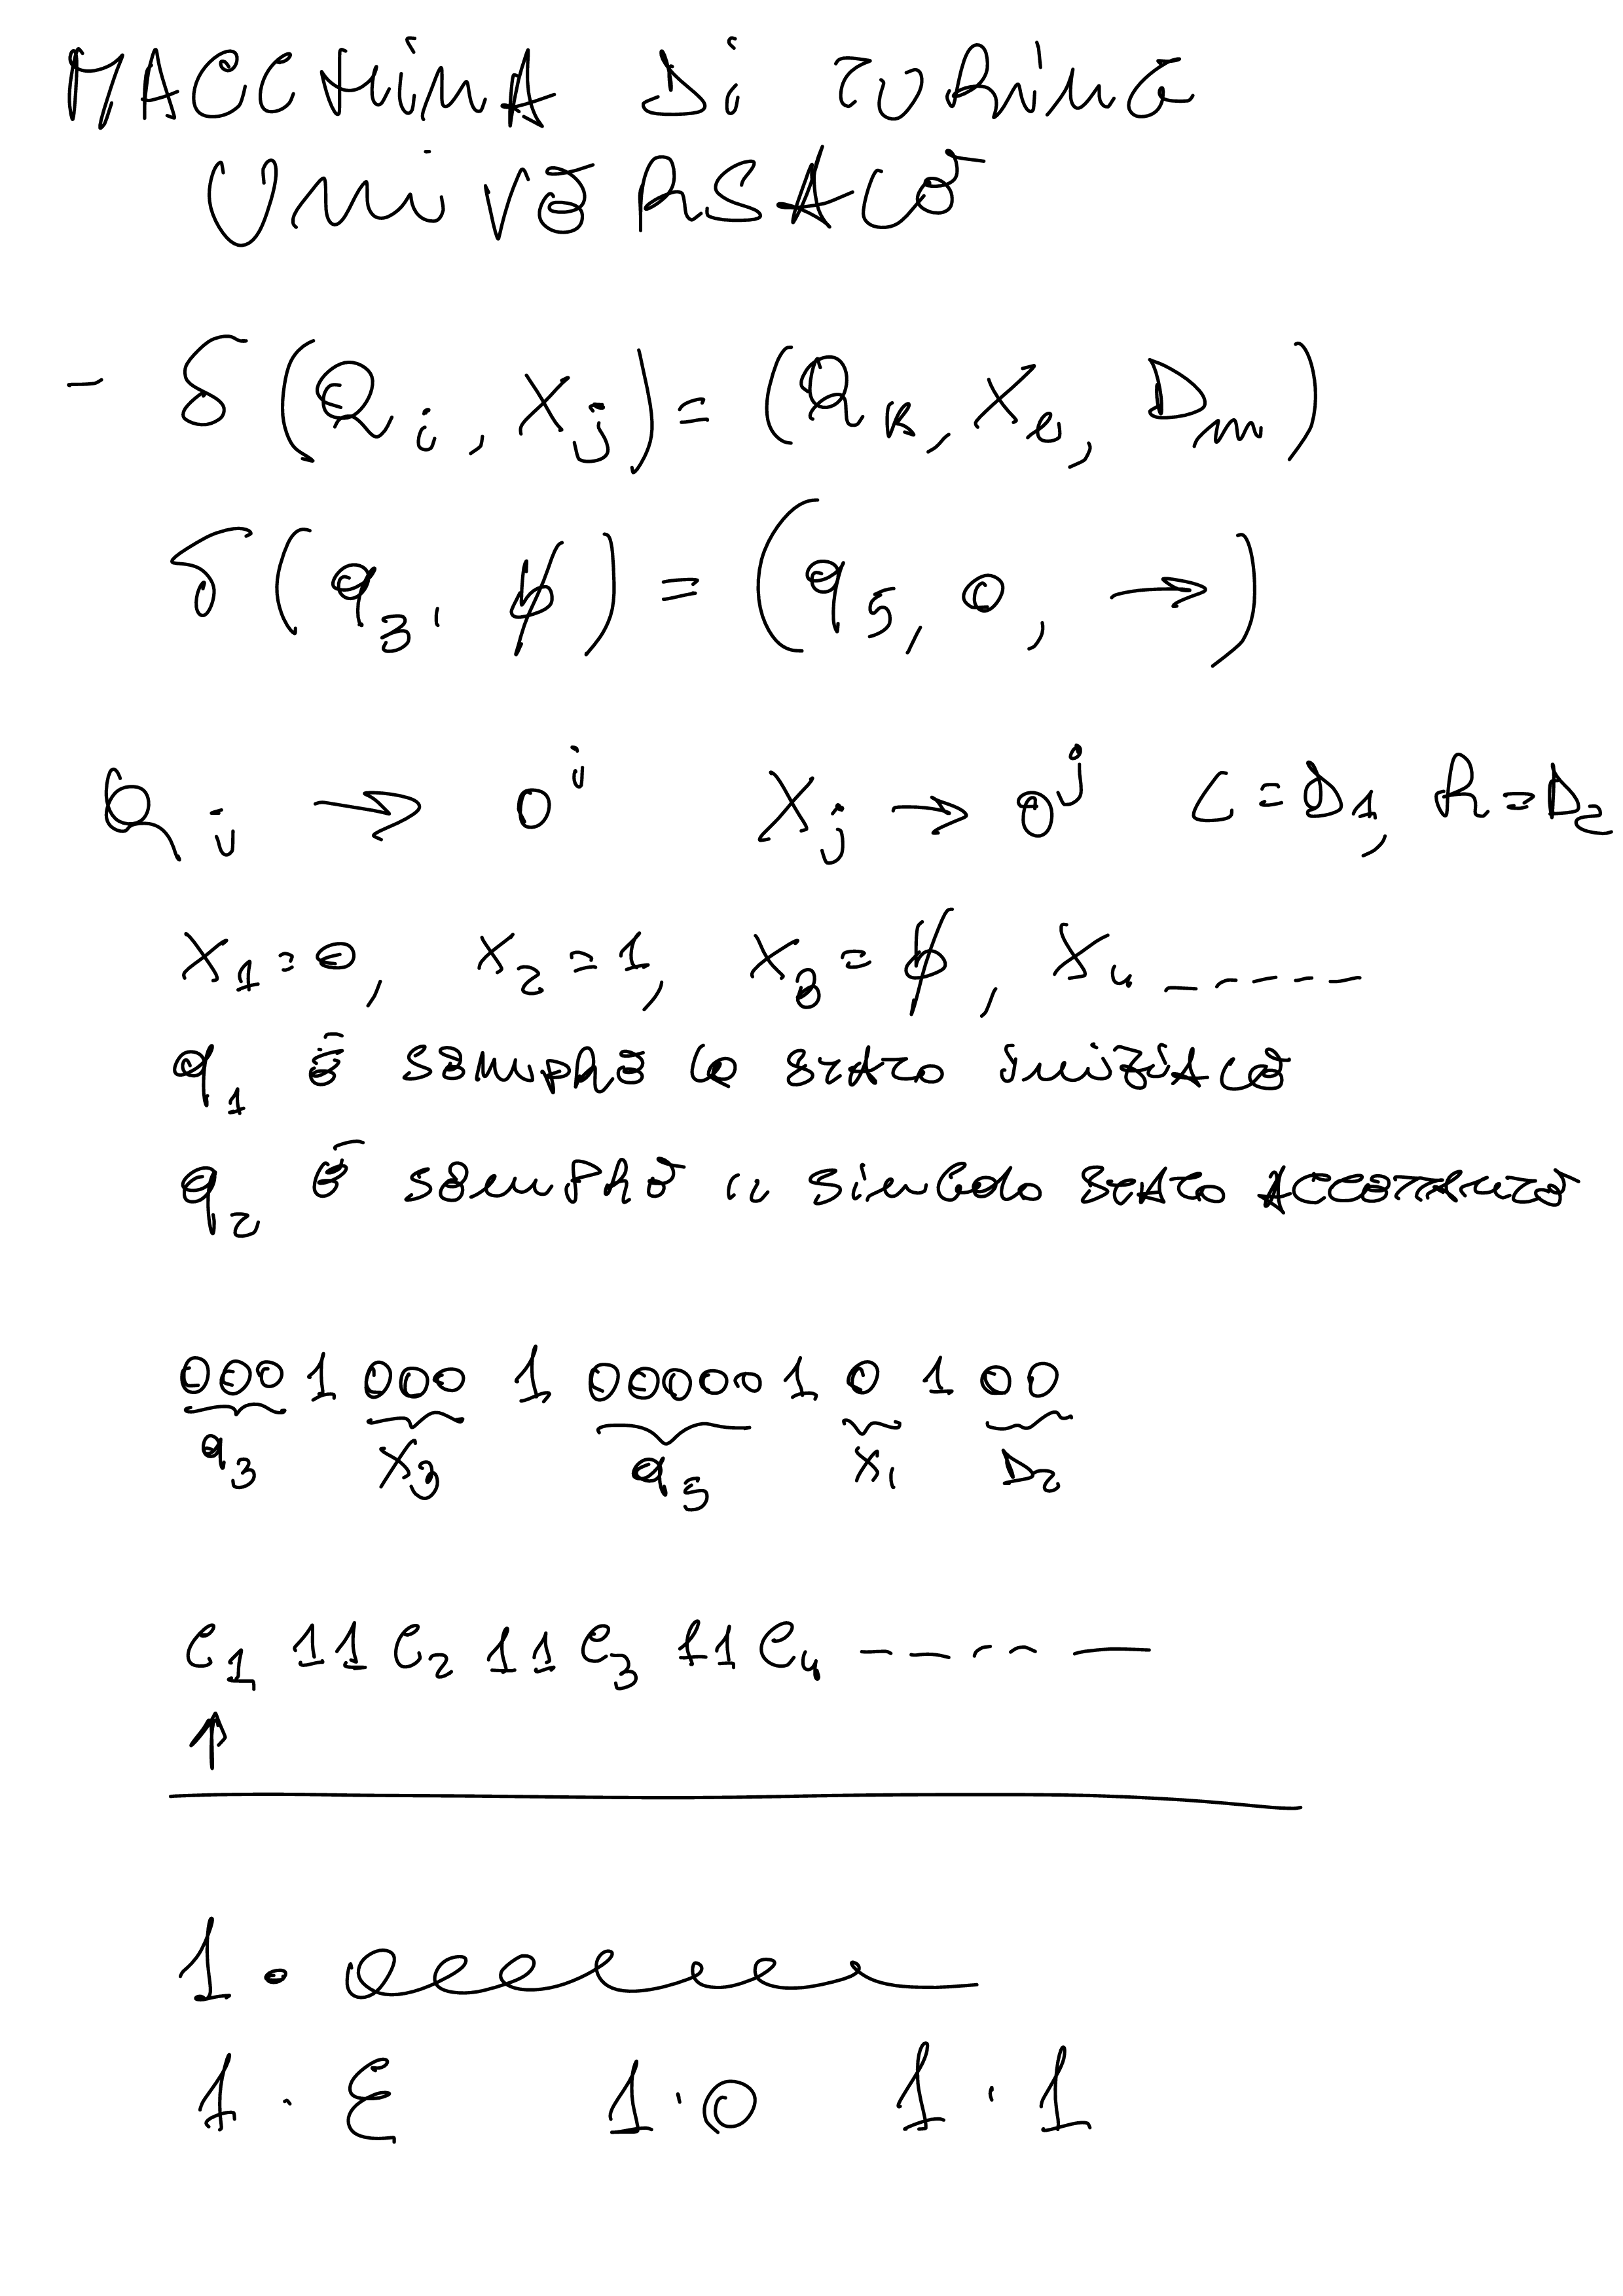 MACCHINA DI TURING
UNIVERSALE
- δ(Qi, Xj) = (Qk, Xl, Dm)
δ(q3, ƀ) = (q5, 0, →)
Qi → 0^i Xj → 0^j L = D1, R = D2
X1 = 0, X2 = 1, X3 = ƀ, X4 ------
q1 È SEMPRE LO STATO INIZIALE
q2 È SEMPRE IL SINGOLO STATO ACCETTANTE
000 1 000 1 00000 1 0 1 00
q3 X3 q5 X1 D2
C1 11 C2 11 C3 11 C4 ------
↑
1 ·
1 · ε 1 · 0 1 · 1